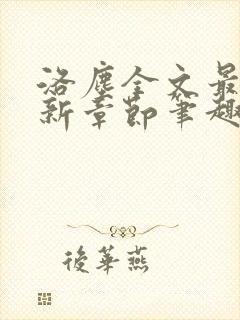 洛塵全文最
新章節筆趣
後華燕